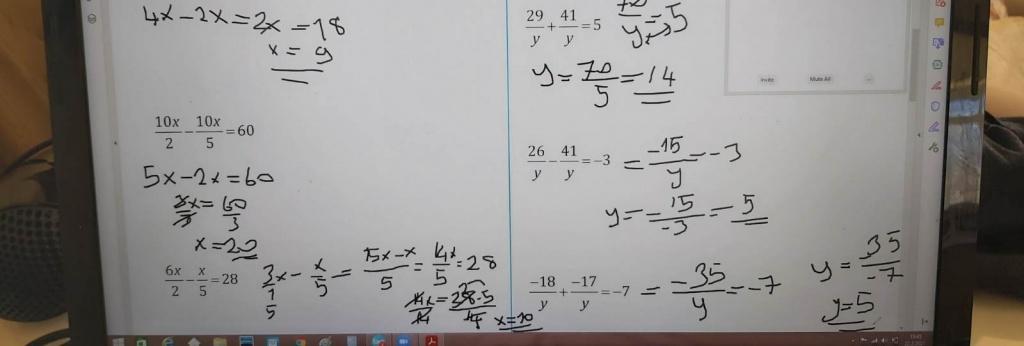 4x-2x=2x=18
x=9
10x/2 - 10x/5 =60
5x-2x=60
3x/3=60/3
x=20
6x/2 - x/5 =28
3x/1 - x/5 = 15x-x/5 = 14x/5 =28
5
x=10
29/y + 41/y =5
70/y=5
y=70/5=14
26/y - 41/y =-3 = -15/y=-3
y=-15/-3=5
-18/y + -17/y =-7 = -35/y=-7
y=35/-7
y=5
Invite
Mute All